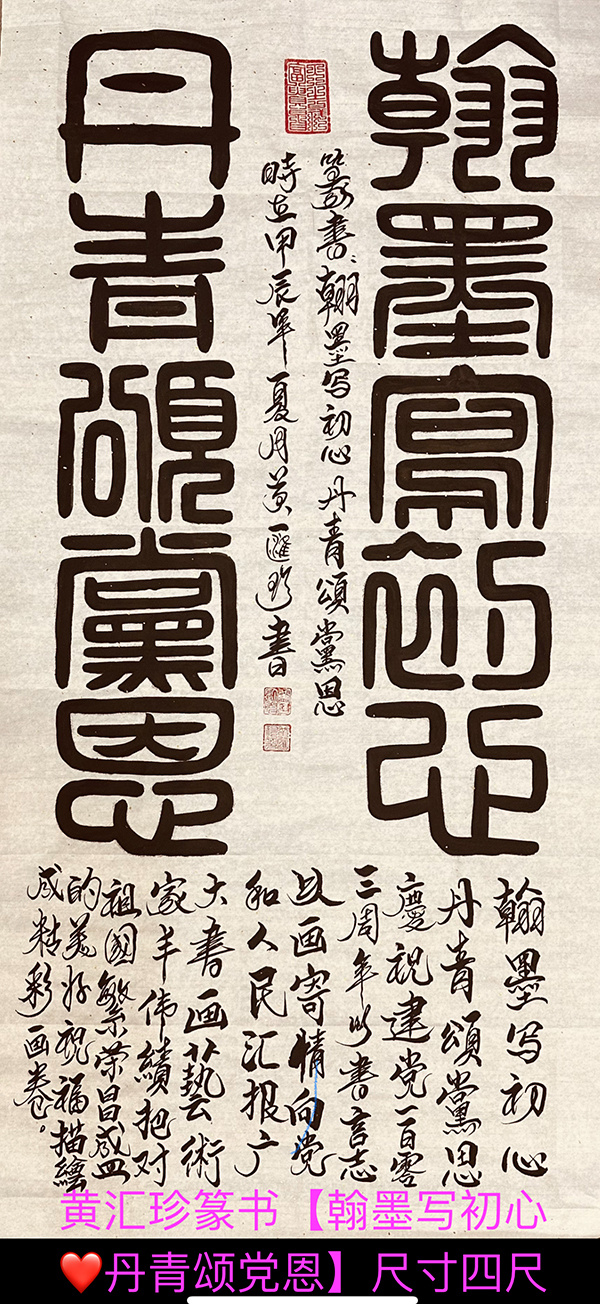 翰墨寫初心
丹青頌黨恩
篆書、翰墨写初心丹青頌黨恩
時在甲辰年夏月黄匯珍書
翰墨写初心
丹青頌黨恩
慶祝建党一百零
三周年以書言志
以画寄情向党
和人民汇报广
大書画藝術
家丰伟績把对
祖國繁荣昌盛
的美好祝福描繪
成精彩画卷。
黄汇珍篆书【翰墨写初心
❤️丹青颂党恩】尺寸四尺